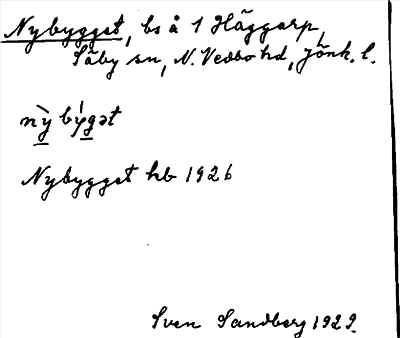 Nybygget, bs å 1 Häggarp,
Säby sn, N. Vedbo hd, Jönk. l.
nỳ by̍gət
Nybygget hb 1926
Sven Sandberg 1929.